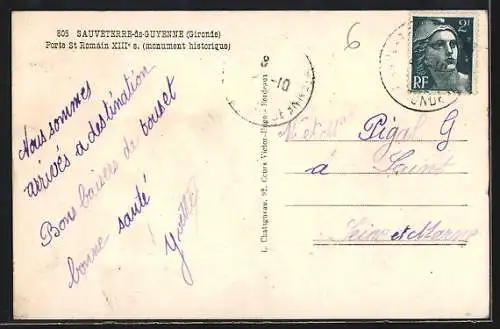 805 SAUVETERRE-de-GUYENNE (Gironde)
Porte St Romain XIIIe s. (monument historique)
6
2F
RF
Nous sommes
arrivés a destination
Bons baisers de
bonne santé
Yvette
L. Chatagneau, 92, Cours Victor-Hugo - Bordeaux
Pigal G
à Saint
Seine et Marne